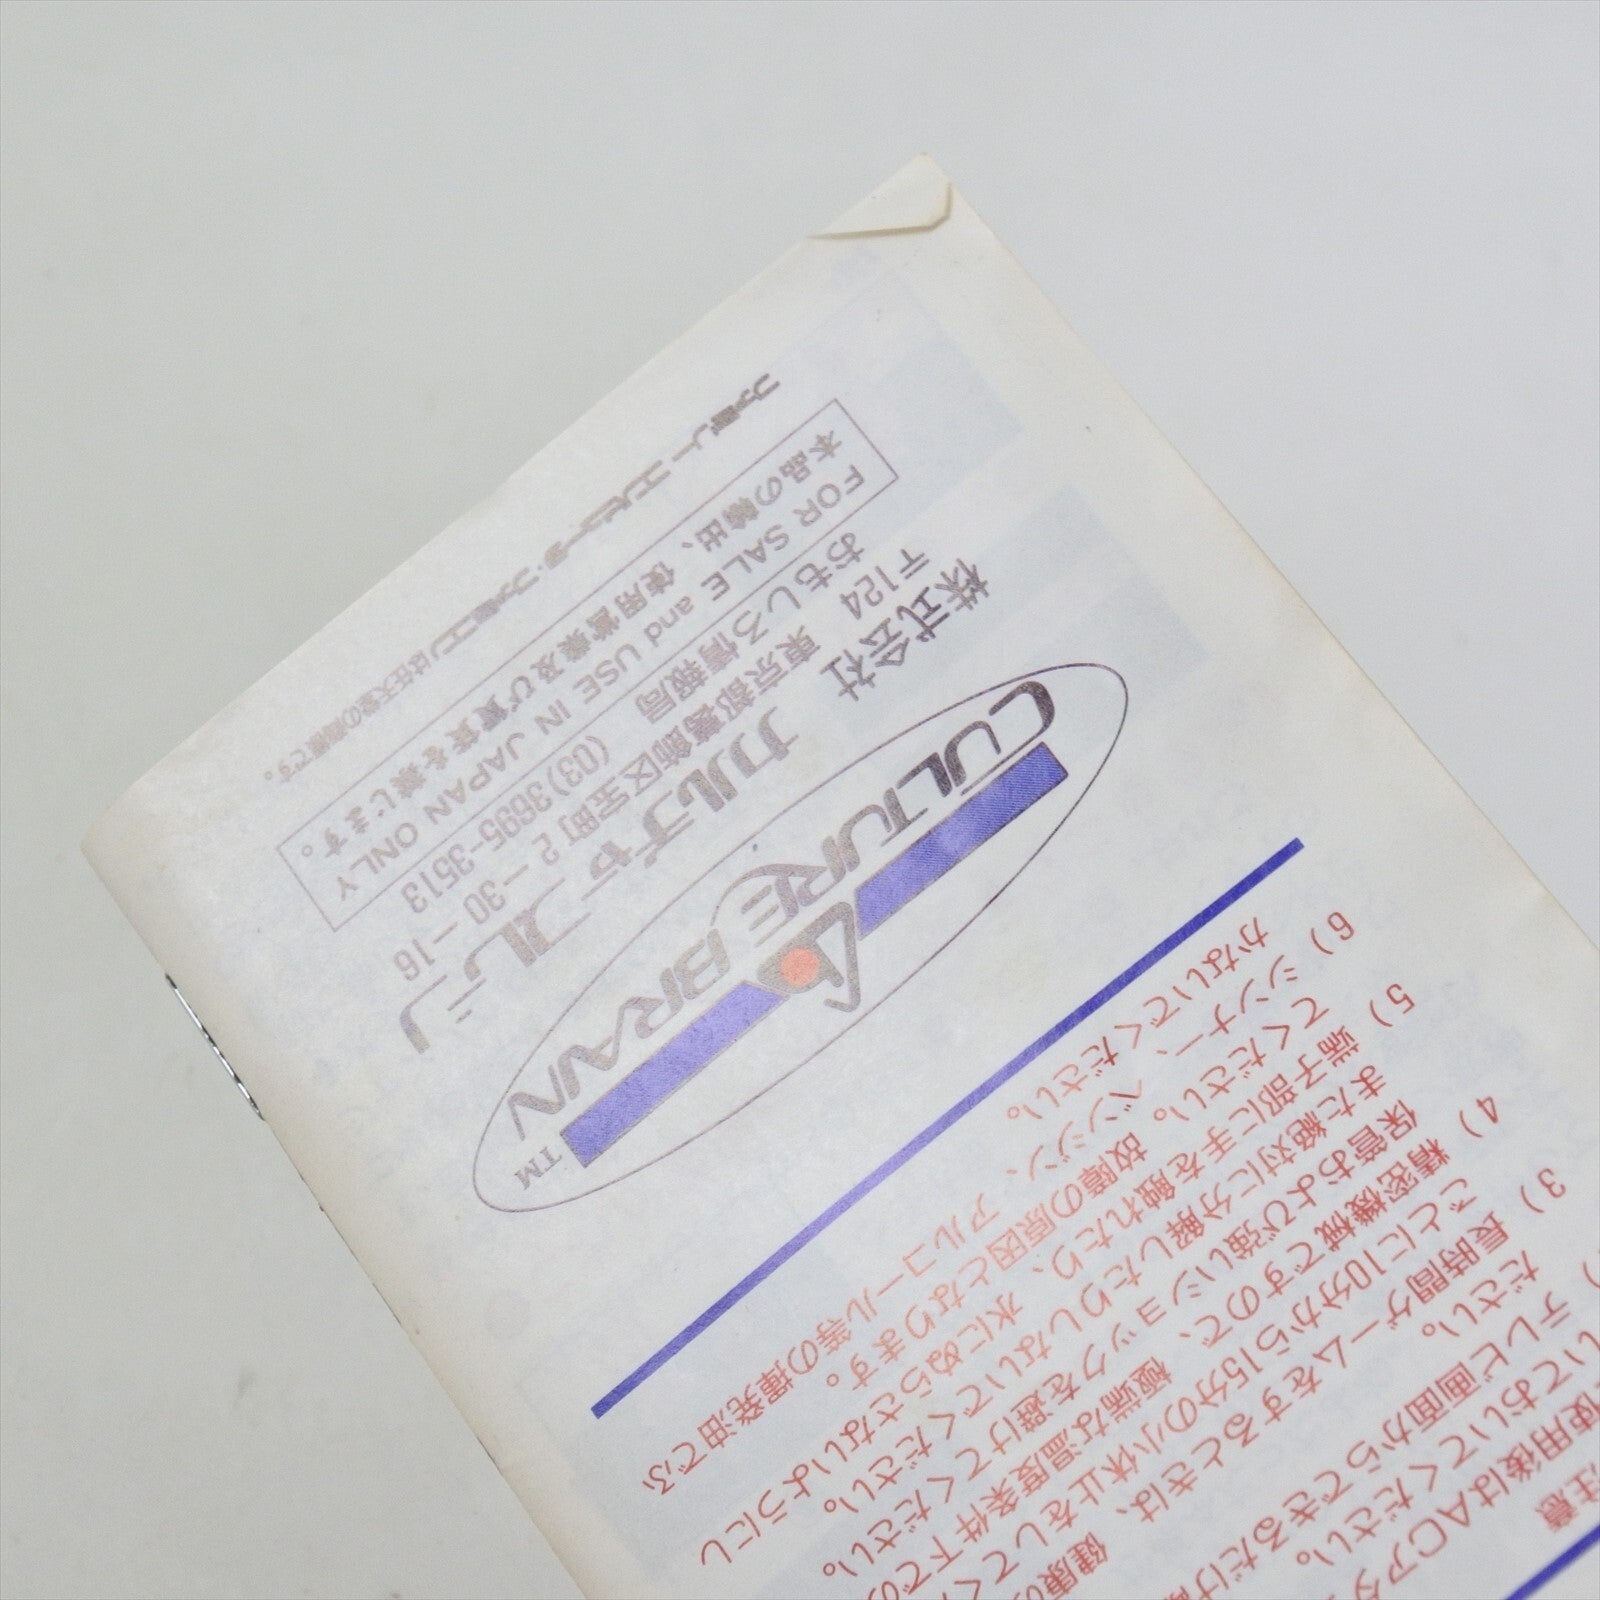 注意
使用後はACアダ
いておいてください。
テレビ画面からできるだけ
ださい。
3) 長時間ゲームをするときは、健康の
ごとに10分から15分の小休止をしてく
4) 精密機械ですので、極端な温度条件下での
保管および強いショックを避けてください。
また絶対に分解したりしないでください。
5) 端子部に手を触れたり、水にぬらさないようにし
てください。故障の原因となります。
6) シンナー、ベンジン、アルコール等の揮発油でふ
かないでください。
CULTURE BRAIN TM
株式会社 カルチャーブレーン
〒124 東京都葛飾区宝町2-30-16
おもしろ情報局 (03)3695-3513
FOR SALE and USE IN JAPAN ONLY
本品の輸出、使用営業及び賃貸を禁じます。
ファミリーコンピュータ・ファミコンは任天堂の商標です。